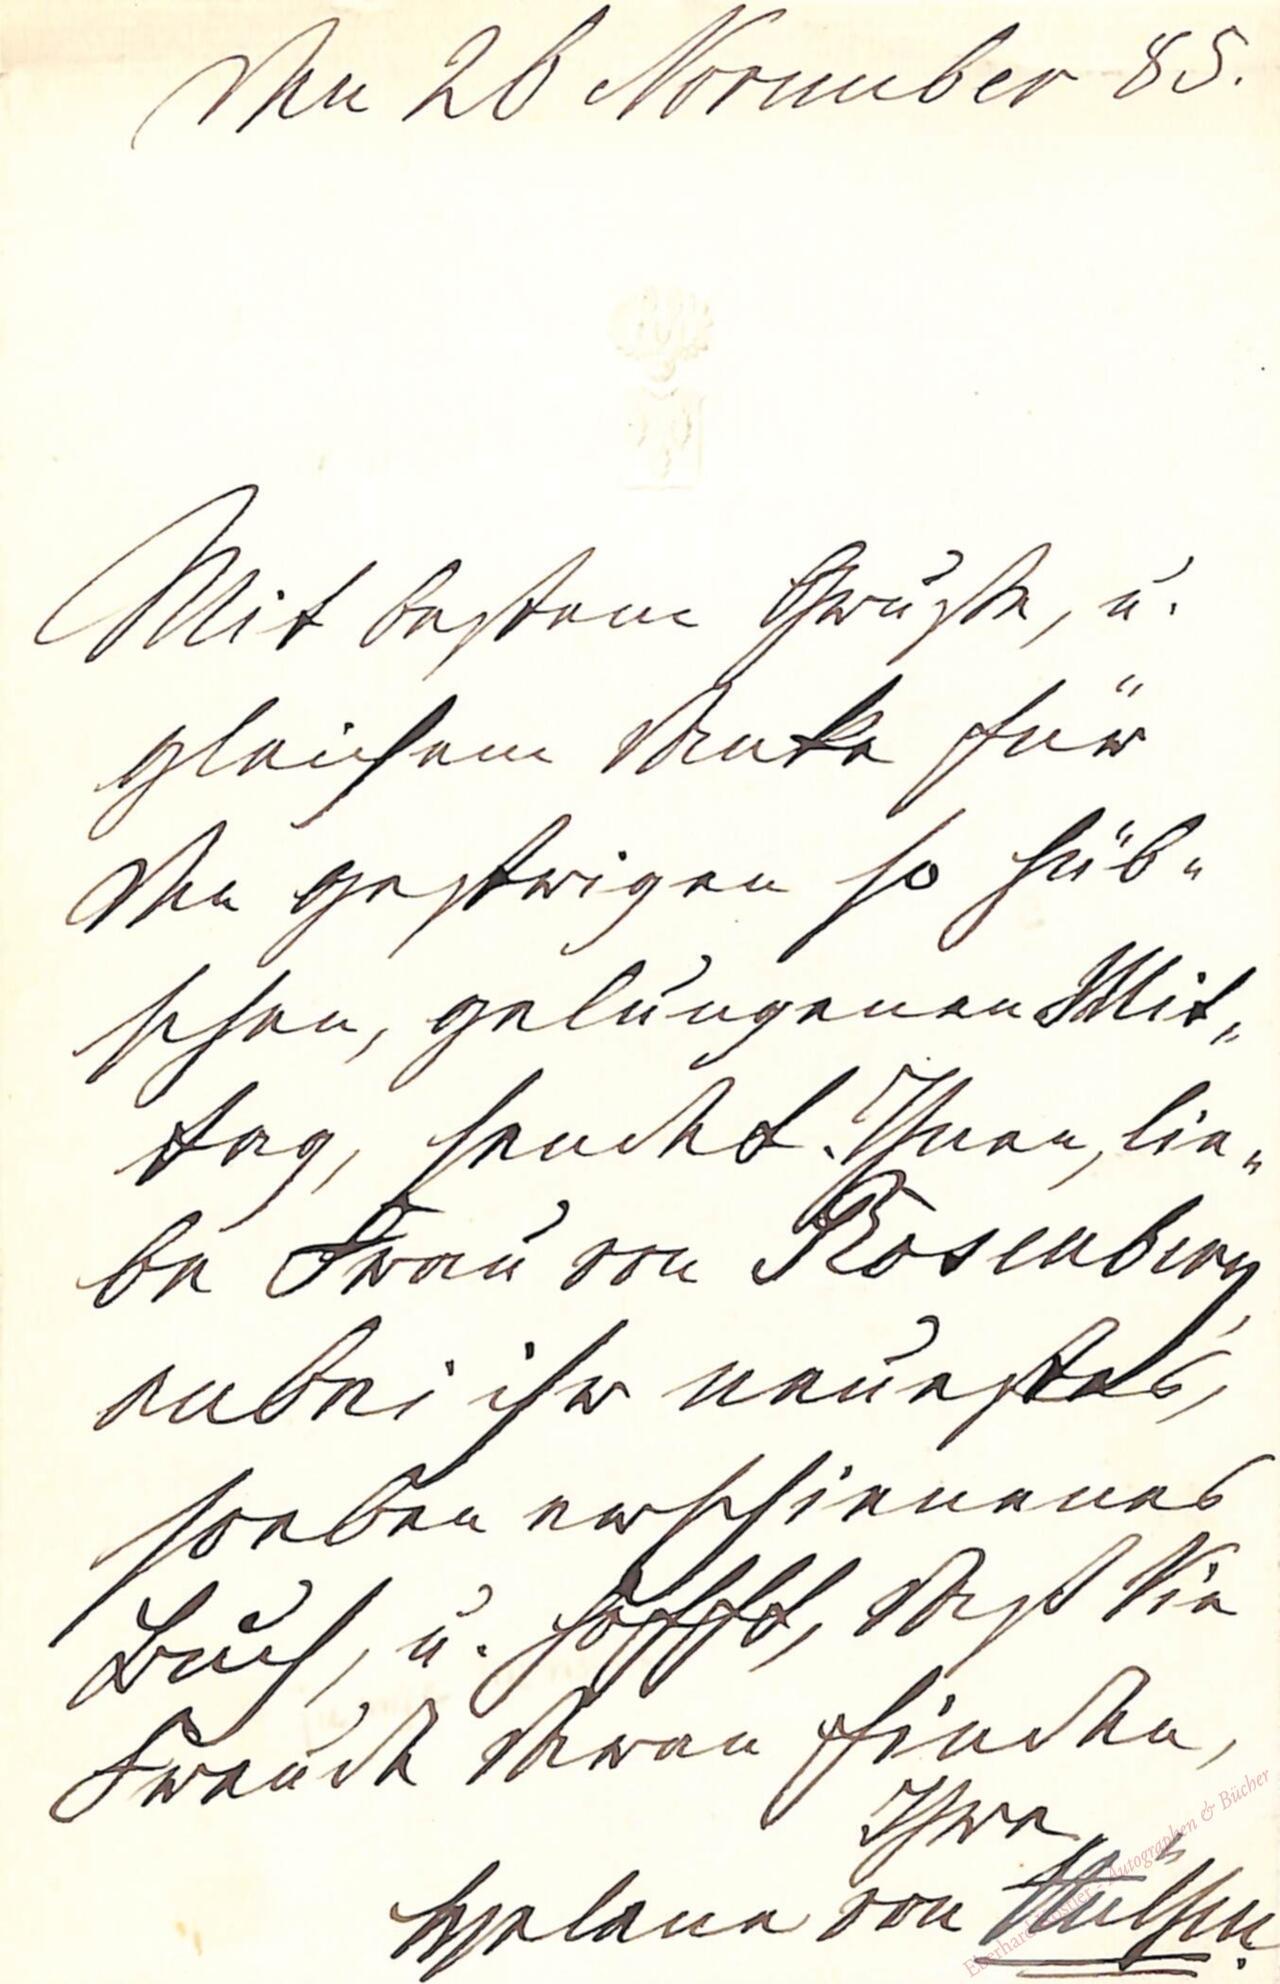 Den 26 November 85.
Mit bestem Gruße, u.
gleichem Danke für
den gestrigen so hüb„
schen, gelungenen Mit„
tag, sendet Ihnen, lie„
be Frau von Rosenberg,
anbei ihr neuestes,
soeben erschienenes
Buch, u. hofft, daß Sie
Freude daran finden,
Ihre
Helene von Hülsen.
Eberhard Köstler - Autographen & Bücher